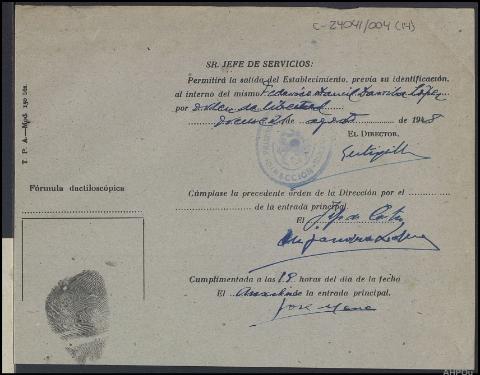 C-24041/004 (14)
SR. JEFE DE SERVICIOS:
Permitirá la salida del Establecimiento, previa su identificación,
al interno del mismo Federico Daniel López
por orden de libertad
de agosto de 1948
EL DIRECTOR,
DIRECCIÓN
T. P. A.—Mod. 190 bis.
Fórmula dactiloscópica
Cúmplase la precedente orden de la Dirección por el
de la entrada principal.
El Jefe de Centro
Alejandro
Cumplimentada a las 19 horas del día de la fecha
El la entrada principal.
José
AHPOu